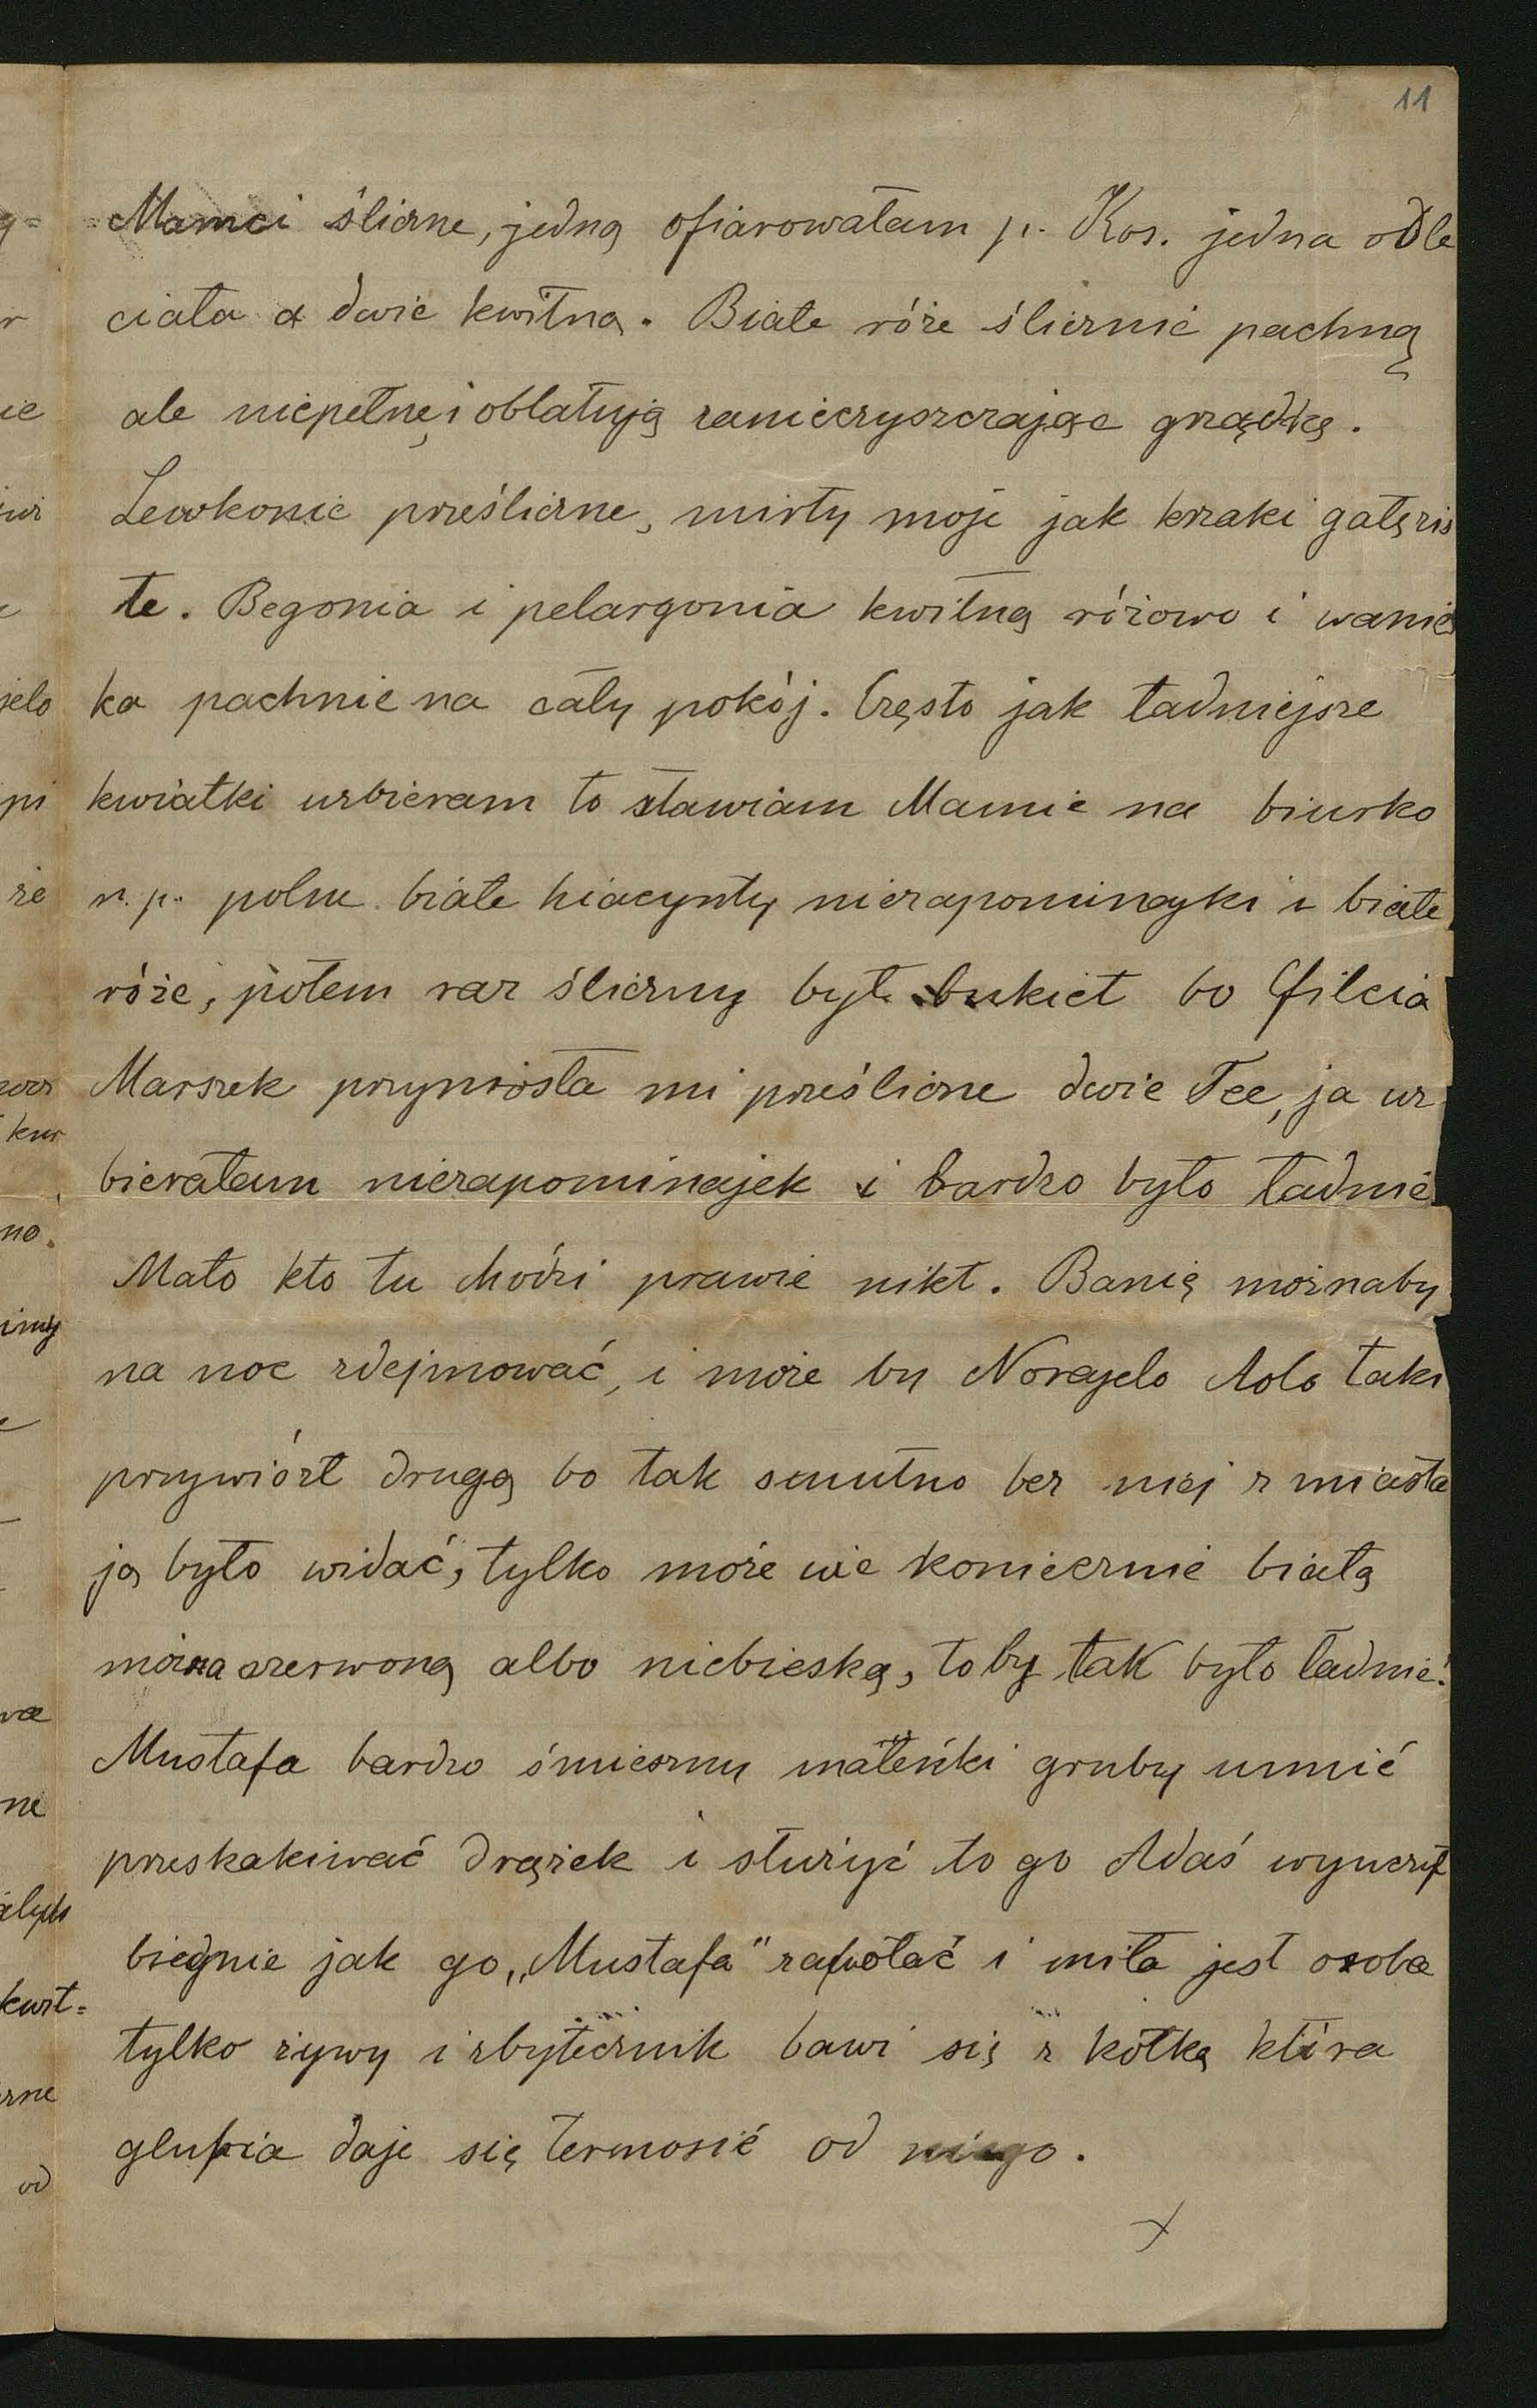 11
Mamci śliczne, jedną ofiarowałam p. Kos. jedna odle
ciała a dwie kwitną. Białe róże ślicznie pachną
ale niepełne i oblatują zanieczyszczając grządkę.
Lewkonie prześliczne, mirty moje jak krzaki gałęzis
te. Begonia i pelargonia kwitną różowo i wanie
ka pachnie na cały pokój. Często jak ładniejsze
kwiatki uzbieram to stawiam Mamie na biurko
n.p. polne białe hiacynty niezapominajki i białe
róże, potem raz śliczny był bukiet bo Filcia
Marszek przyniosła mi prześliczne dwie Tee, ja uz
bierałam niezapominajek i bardzo było ładnie
Mało kto tu chodzi prawie nikt. Banię możnaby
na noc zdejmować, i może by Lolo taki
przywiózł drugą bo tak smutno bez niej z miasta
ją było widać, tylko może nie koniecznie białą
można czerwoną albo niebieską, to by tak było ładnie!
Mustafa bardzo śmieszny maleńki gruby umie
przeskakiwać drążek i służyć to go Adaś wyuczył
biegnie jak go „Mustafa" zawołać i miła jest osoba
tylko żywy i zbytecznik bawi się z kotką która
głupia daje się termosić od niego.